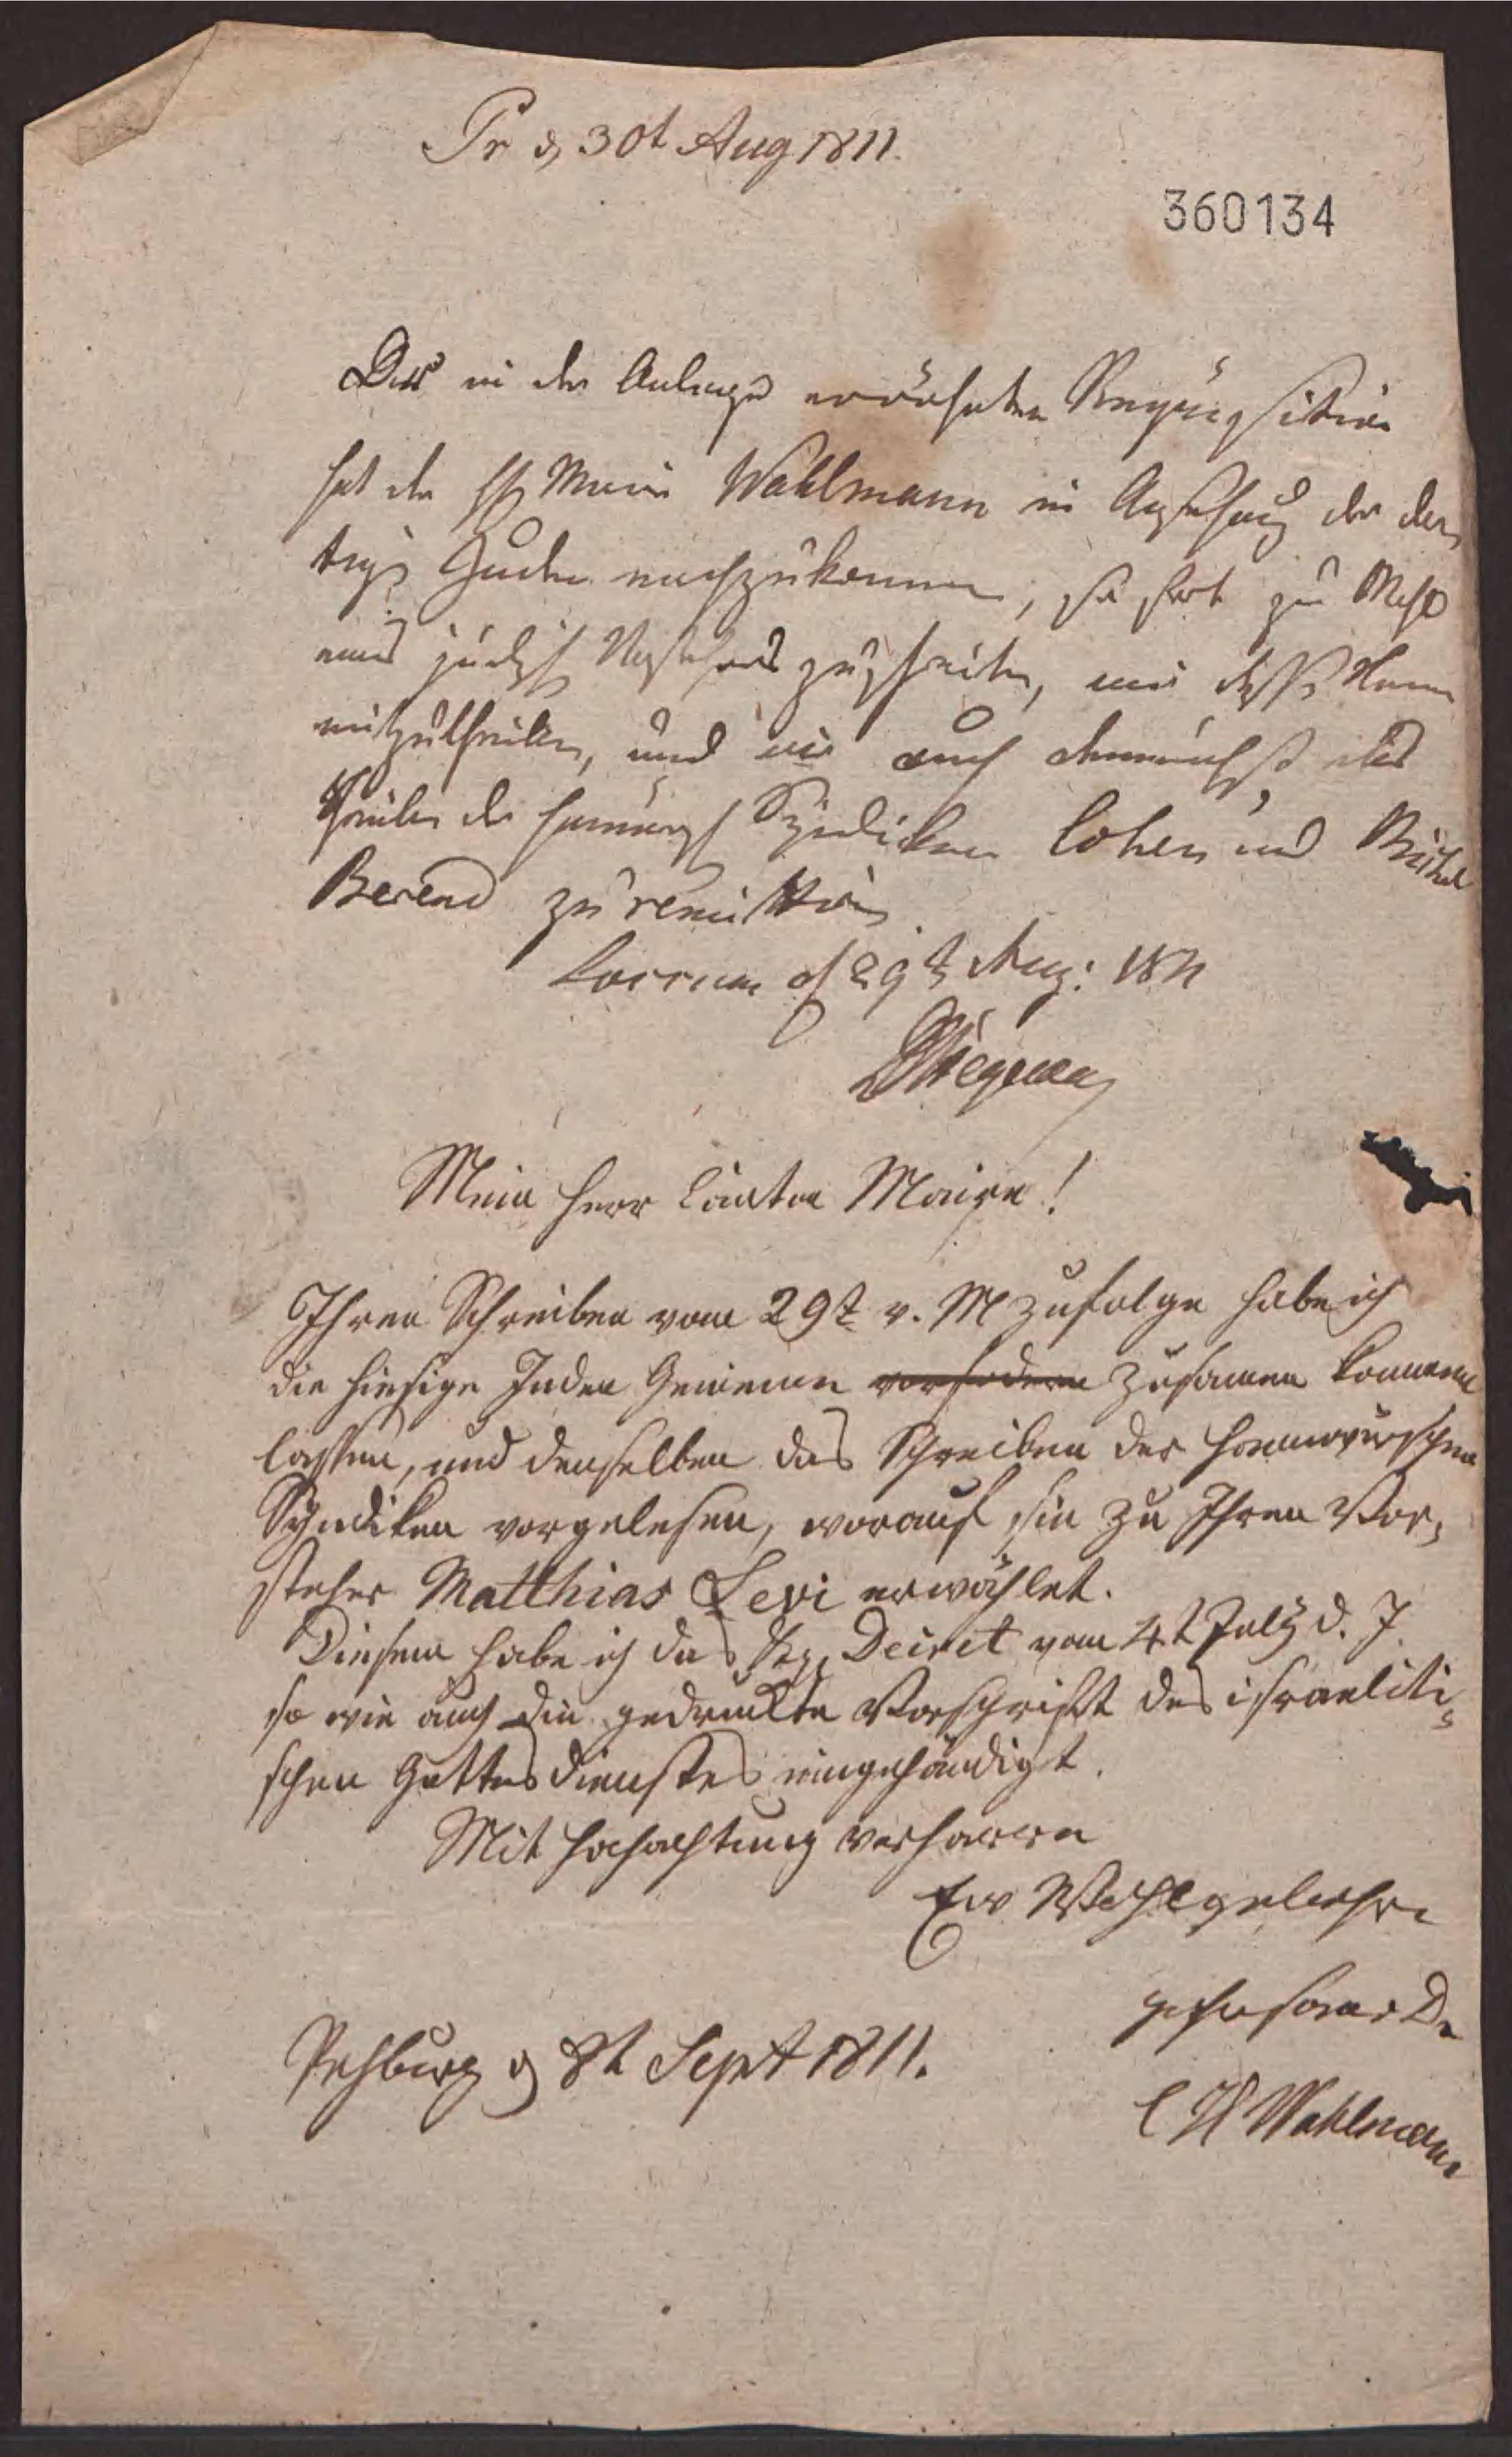 Pr d 30t Aug 1811.
360134
Der in der Anlage erwähnten Requisition
hat der H Maire Wahlmann in Ansehung der dor,
tigen Juden nachzukommen, so fort zur Wahl
eines jüdisch Vorstehers zu schreiten, mir dessen Namen
mitzutheilen, und mir auch demnächst das
Schreiben der hannöversch Syndiken Cohen und Michel
Berend zu remittiren
Loccum d 29t Aug: 1811
Mein Herr Canton Maire!
Ihren Schreiben vom 29t v. M zufolge habe ich
die hiesige Juden Gemeine vorfodern zusamen kommen
lassen, und denselben das Schreiben der hannövrschen
Syndiken vorgelesen, worauf sie zu Ihren Vor,
steher Matthias Levi erwählet.
Diesem habe ich das Kgl. Decret vom 4t July d. J.
so wie auch die gedruckte Vorschrift des israeliti,
schen Gottesdienstes eingehändigt.
Mit Hochachtung verharre
Ew Wohlgebohrn
gehorsamer Dr
Rehburg d 8t Sept 1811.
C H Wahlmann